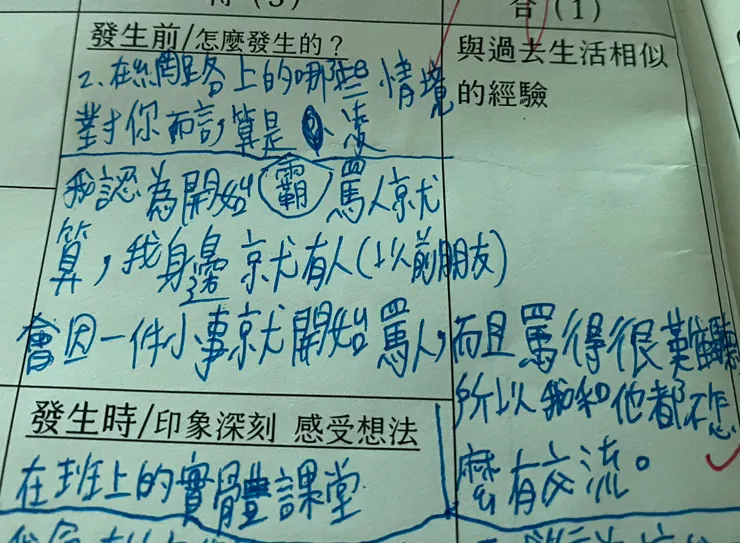 合（1）
發生前/怎麼發生的？
2、在網路上的哪些情境
對你而言,算是 凌
霸
我認為開始罵人就
算，我身邊就有人(以前朋友)
會因一件小事就開始罵人,而且罵得很難聽
所以我和他都不怎
麼有交流。
與過去生活相似
的經驗
發生時/印象深刻 感受想法
在班上的實體課堂